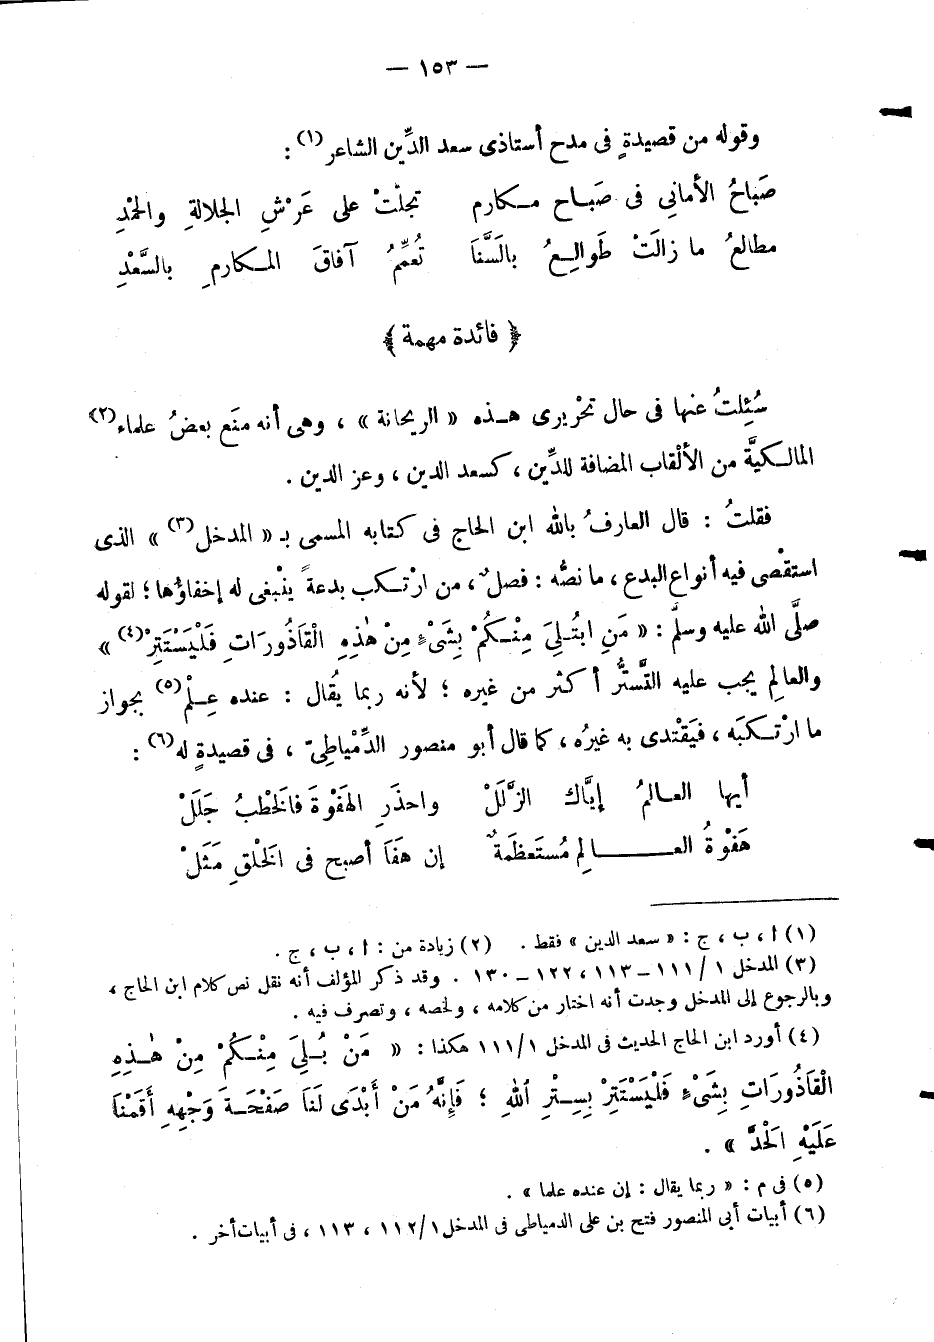 — ١٥٣ —
وقوله من قصيدةٍ فى مدح أستاذى سعد الدِّين الشاعر(١) :
صَباحُ الأمانِى فى صَبـاح مـكارم تجلتْ على عَرْشِ الجلالةِ والحمْدِ
مطالعُ ما زالَتْ طَوالِـعُ بالَسَّنَا تُعمِّمُ آفاقَ المـكارمِ بالسَّعْدِ
﴿ فائدة مهمة ﴾
سُئِلتُ عنها فى حال تحْريرى هـذه « الريحانة » ، وهى أنه منَع بعضُ علماء(٢)
المالـكيَّة من الألْقاب المضافة للدِّين ، كسعد الدين ، وعز الدين .
فقلتُ : قال العارفُ بالله ابن الحاج فى كتابه المسمى بـ « المدخل(٣) » الذى
استقْصى فيه أنواع البدع ، ما نصُّه : فصلٌ ، من ارْتـكب بدعةً ينْبغى له إخفاؤها ؛ لقوله
صلَّى الله عليه وسلَّم : « مَنِ ابتُـلِىَ مِنْـكُمْ بِشَىْءٍ مِنْ هٰذِهِ الْقَاذُورَاتِ فَلْيَسْتَتِرْ(٤) »
والعالِم يجب عليه التَّستُّر أكثر من غيره ؛ لأنه ربما يُقال : عنده عِـلْم(٥) بجواز
ما ارْتـكبَه ، فيَقْتدى به غيرُه ، كما قال أبو منصور الدِّمْياطِىّ ، فى قصيدةٍ له(٦) :
أيها العـالمُ إيَّاك الزَّلَلْ واحذَرِ الهَفْوةَ فالخَطْبُ جَلَلْ
هَفْوةُ العـــالِمِ مُستَعظَمةٌ إن هَفَا أصبح فى الخَلْقِ مَثَلْ
(١) ا ، ب ، ج : « سعد الدين » فقط . (٢) زيادة من : ا ، ب ، ج .
(٣) المدخل ١ /١١١ – ١١٣ ، ١٢٢ – ١٣٠ . وقد ذكر المؤلف أنه نقل نص كلام ابن الحاج ،
وبالرجوع إلى المدخل وجدت أنه اختار من كلامه ، ولخصه ، وتصرف فيه .
(٤) أورد ابن الحاج الحديث فى المدخل ١/ ١١١ هكذا : « مَنْ بُـلِىَ مِنْـكُمْ مِنْ هٰـذِهِ
الْقَاذُورَاتِ بِشَىْءٍ فَلْيَسْتَتِرْ بِسِـتْرِ ٱللهِ ؛ فَإِنَّهُ مَنْ أَبْدَى لَنَا صَفْحَـةَ وَجْهِهِ أَقَمْنَا
عَلَيْهِ الْحَدَّ » .
(٥) فى م : « ربما يقال : إن عنده علما » .
(٦) أبيات أبى المنصور فتح بن على الدمياطى فى المدخل ١/ ١١٢ ، ١١٣ ، فى أبيات أخر .